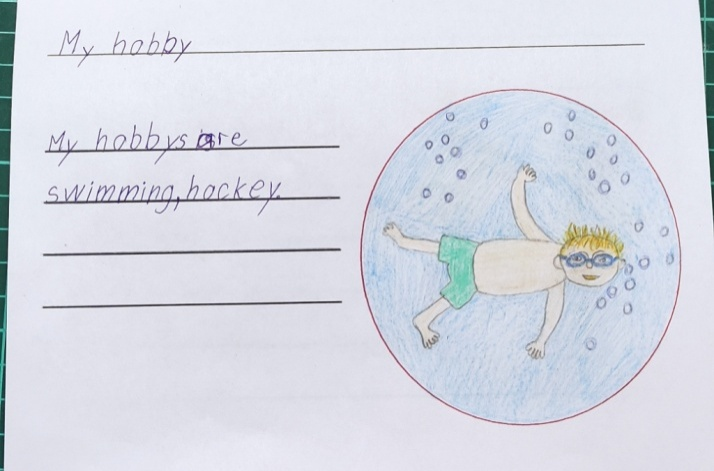 My hobby
My hobbys are
swimming, hockey.